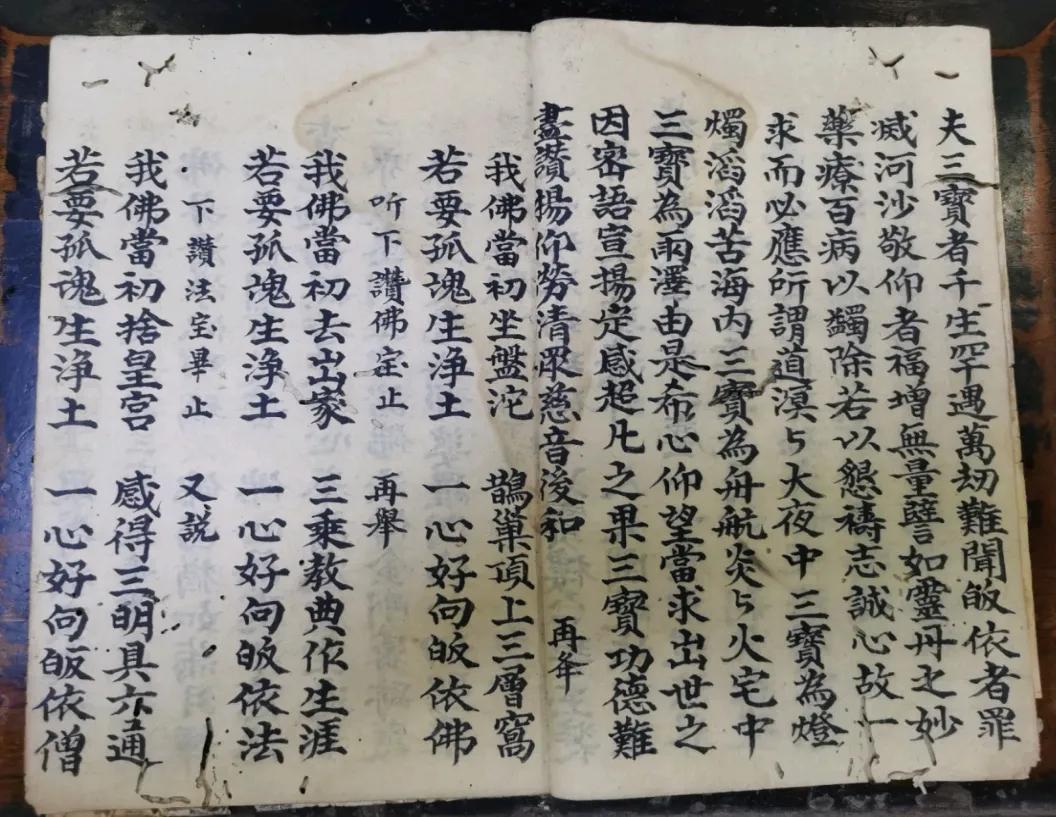 夫三寶者千生罕遇萬刼難聞皈依者罪
烕河沙敬仰者福增無量譬如靈丹之妙
藥療百病以蠲除若以懇禱志誠心故一
求而必應所謂道溟ㄣ大夜中三寶為燈
燭滔滔苦海内三寶為舟航炎ㄣ火宅中
三寶為雨澤由是希心仰望當求出世之
因密語宣揚定感超凡之果三寶功德難
盡讚揚仰勞清眾慈音後和 再年
我佛當初坐盤沱 鵲巢頂上三層窩
若要孤魂生浄土 一心好向皈依佛
听下讚佛宝止 再舉
我佛當初去出家 三乘教典作生涯
若要孤魂生浄土 一心好向皈依法
下讚法宝畢止 又説
我佛當初捨皇宫 感得三明具六通
若要孤魂生浄土 一心好向皈依僧